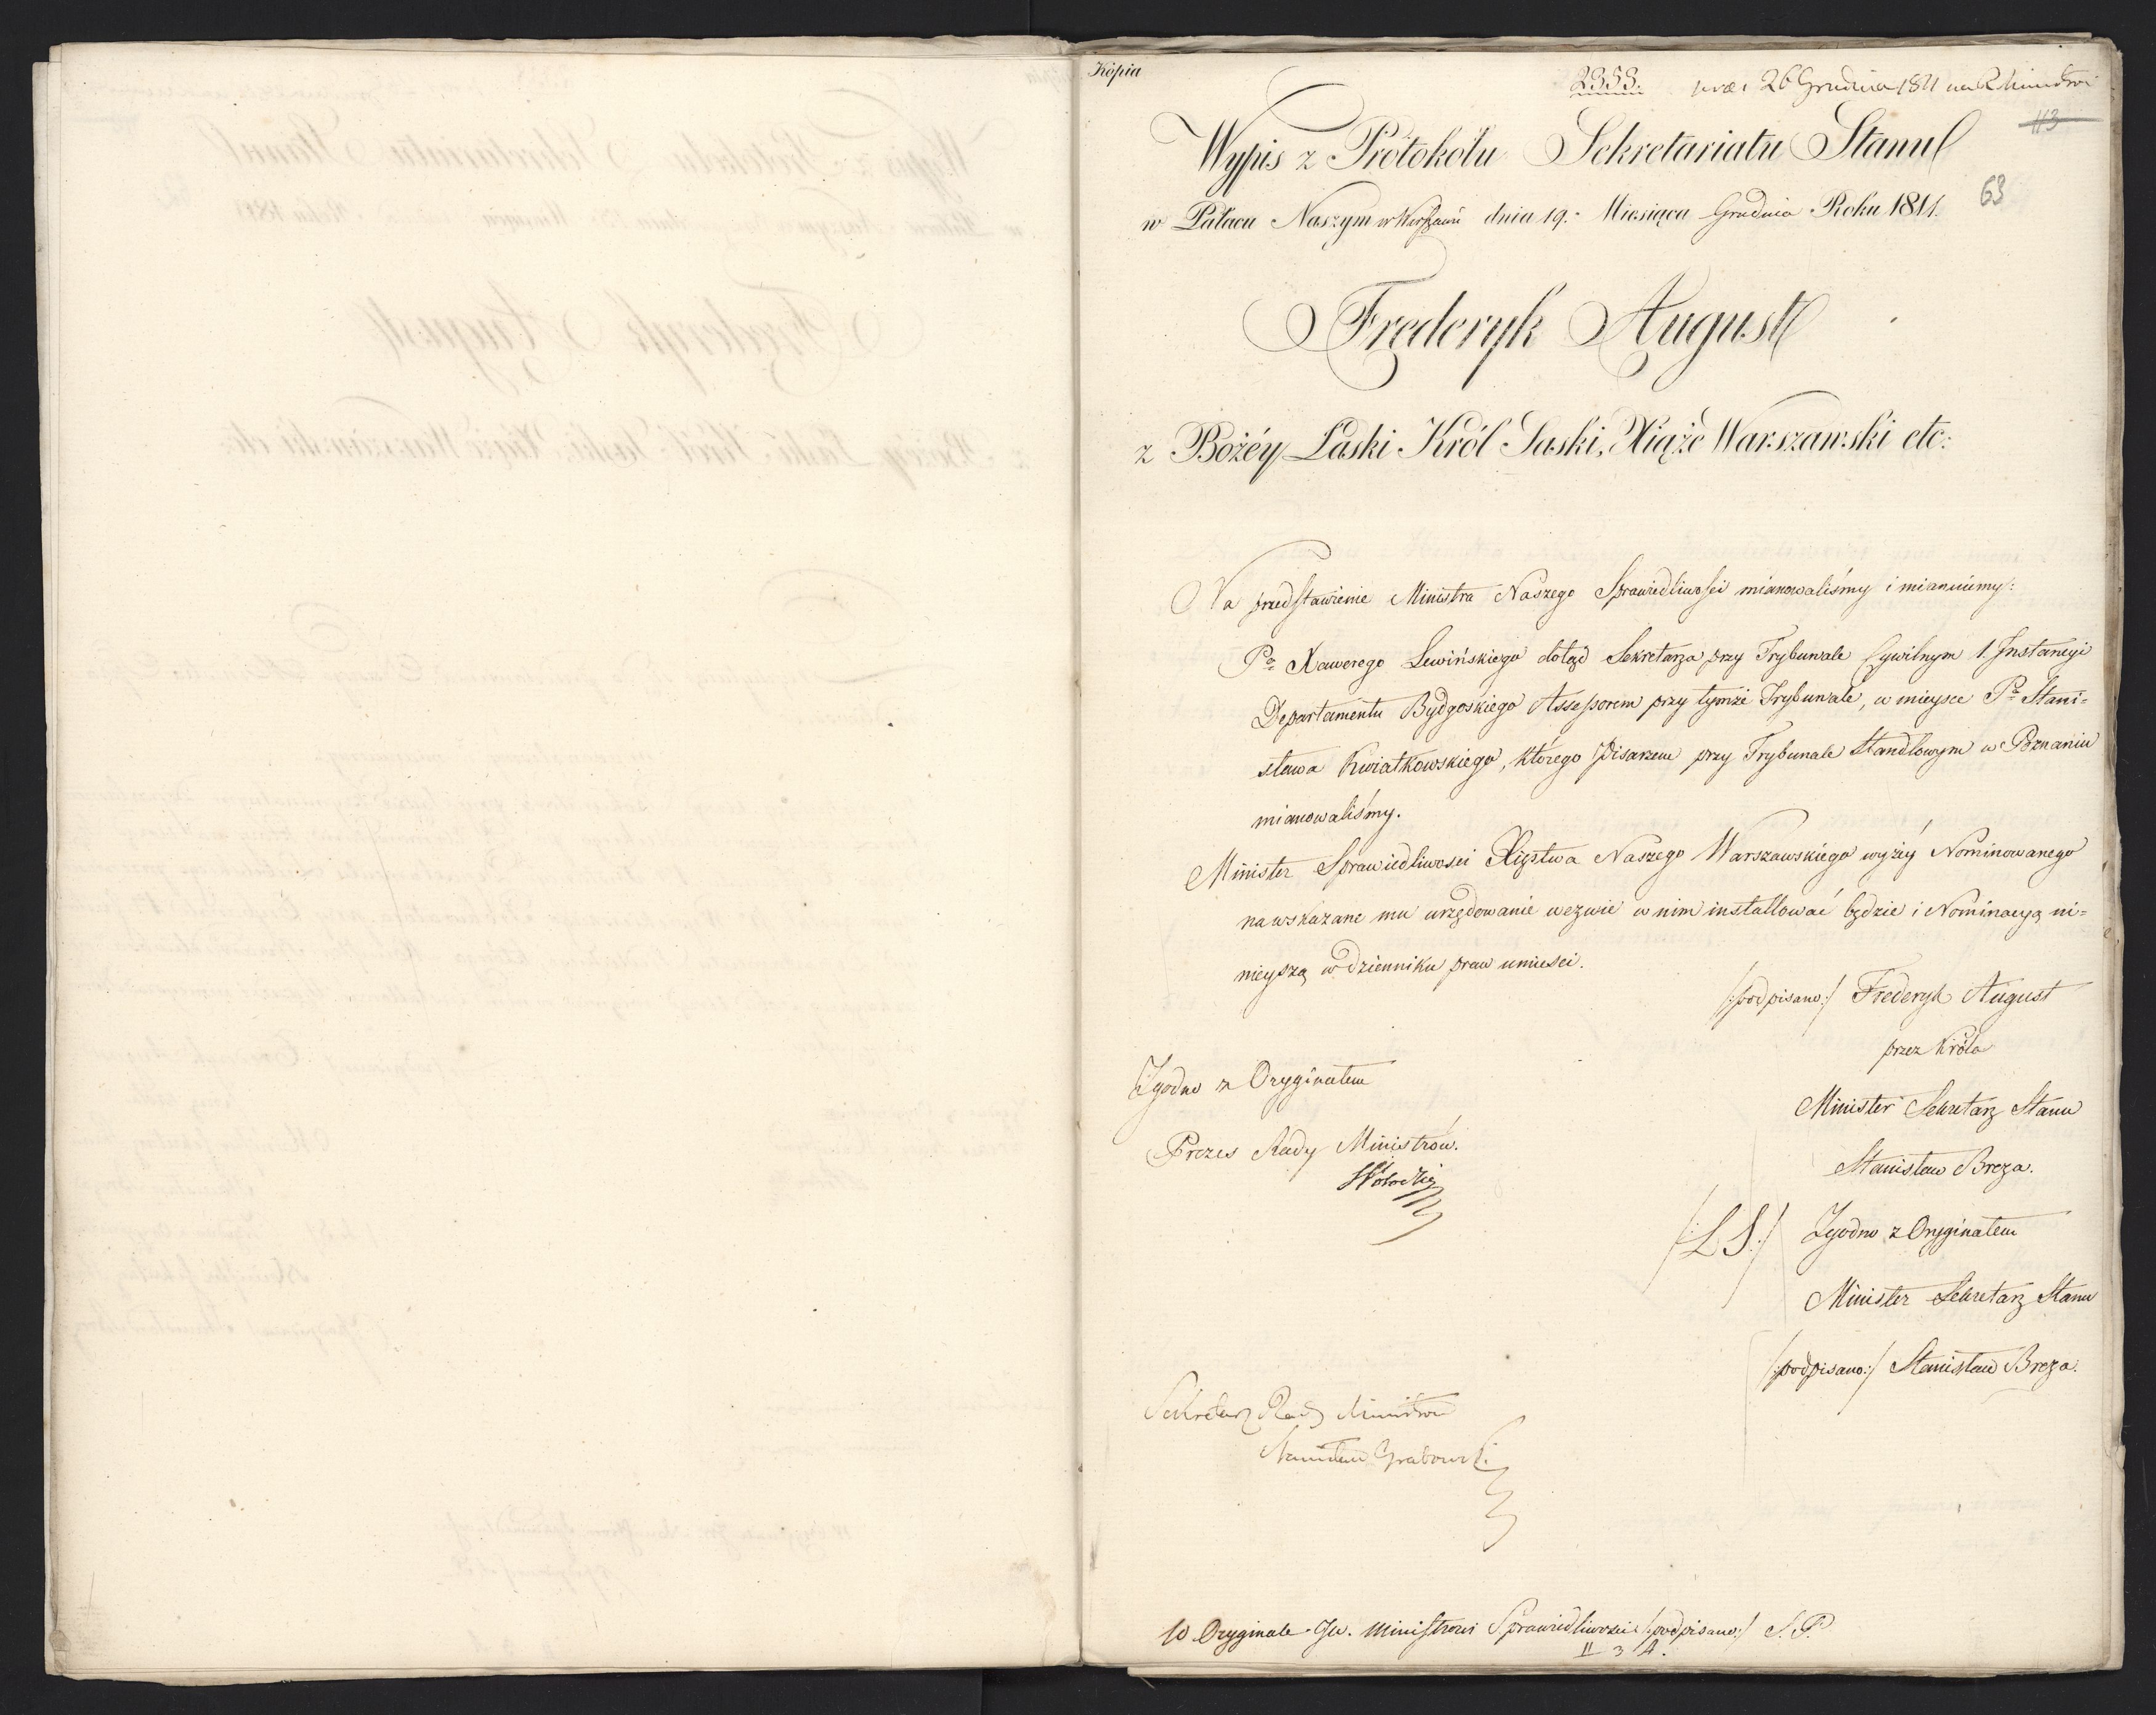 Kópia
2353. 26 Grudnia 1811
113
Wypis z Protokółu Sekretariatu Stanu
63
w Pałacu Naszym w Warszawie dnia 19. Miesiąca Grudnia Roku 1811.
Frederyk August
z Bożéy Łaski Król Saski, Xiąże Warszawski etc:
Na przedstawienie Ministra Naszego Sprawiedliwości mianowaliśmy i mianuiemy:
Pa Xawerego Lewińskiego dotąd Sekretarza przy Trybunale Cywilnym 1. Instancyi
Departamentu Bydgoskiego Assessorem przy tymże Trybunale, w mieysce Pa Stani=
sława Kwiatkowskiego, którego Pisarzem przy Trybunale Handlowym w Poznaniu
mianowaliśmy.
Minister Sprawiedliwosci Xięstwa Naszego Warszawskiego wyżéy Nominowanego
na wskazane mu urzędowanie wezwie w nim installować będzie i Nominacyą ni=
nieyszą w dzienniku praw umiesci.
/:podpisano:/ Frederyk August
przez Króla
Minister Sekretarz Stanu
Stanisław Breza.
Zgodno z Oryginałem
Prezes Rady Ministrów.
/:L.S:/ Zgodno z Oryginałem
Minister Sekretarz Stanu
/:podpisano:/ Stanisław Breza.
Sekretarz Rady Ministrow
Stanisław Grabowski
w Oryginale JW. Ministrowi Sprawiedliwości /:podpisano:/ S.P.